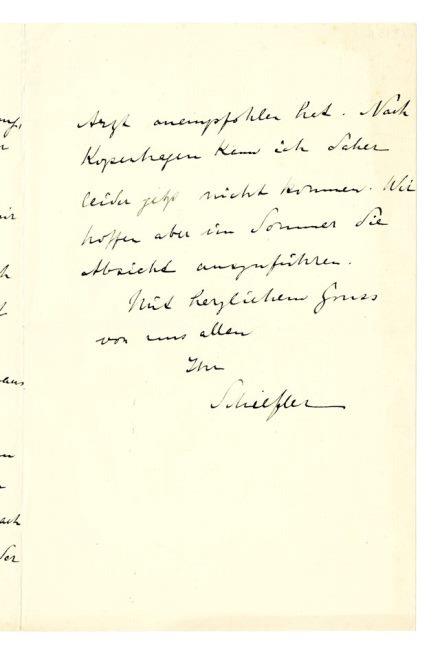 Arzt anempfohlen hat. Nach
Kopenhagen kann ich daher
leider jetzt nicht kommen. Wir
hoffen aber im Sommer die
Absicht auszuführen.
Mit herzlichem Gruss
von uns allen
Ihr
Schiefler